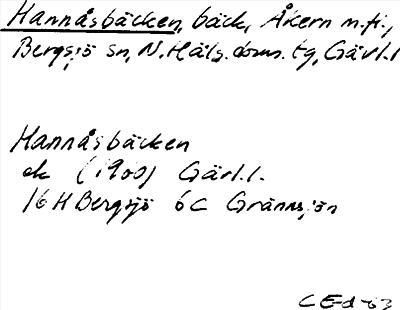 Hannåsbäcken, bäck, Åkern m.fl.,
Bergsjö sn, N. Häls. doms. tg, Gävl.l
Hannåsbäcken
ek (1960) Gävl.l.
16H Bergsjö 6C Grännsjön
CEd -63